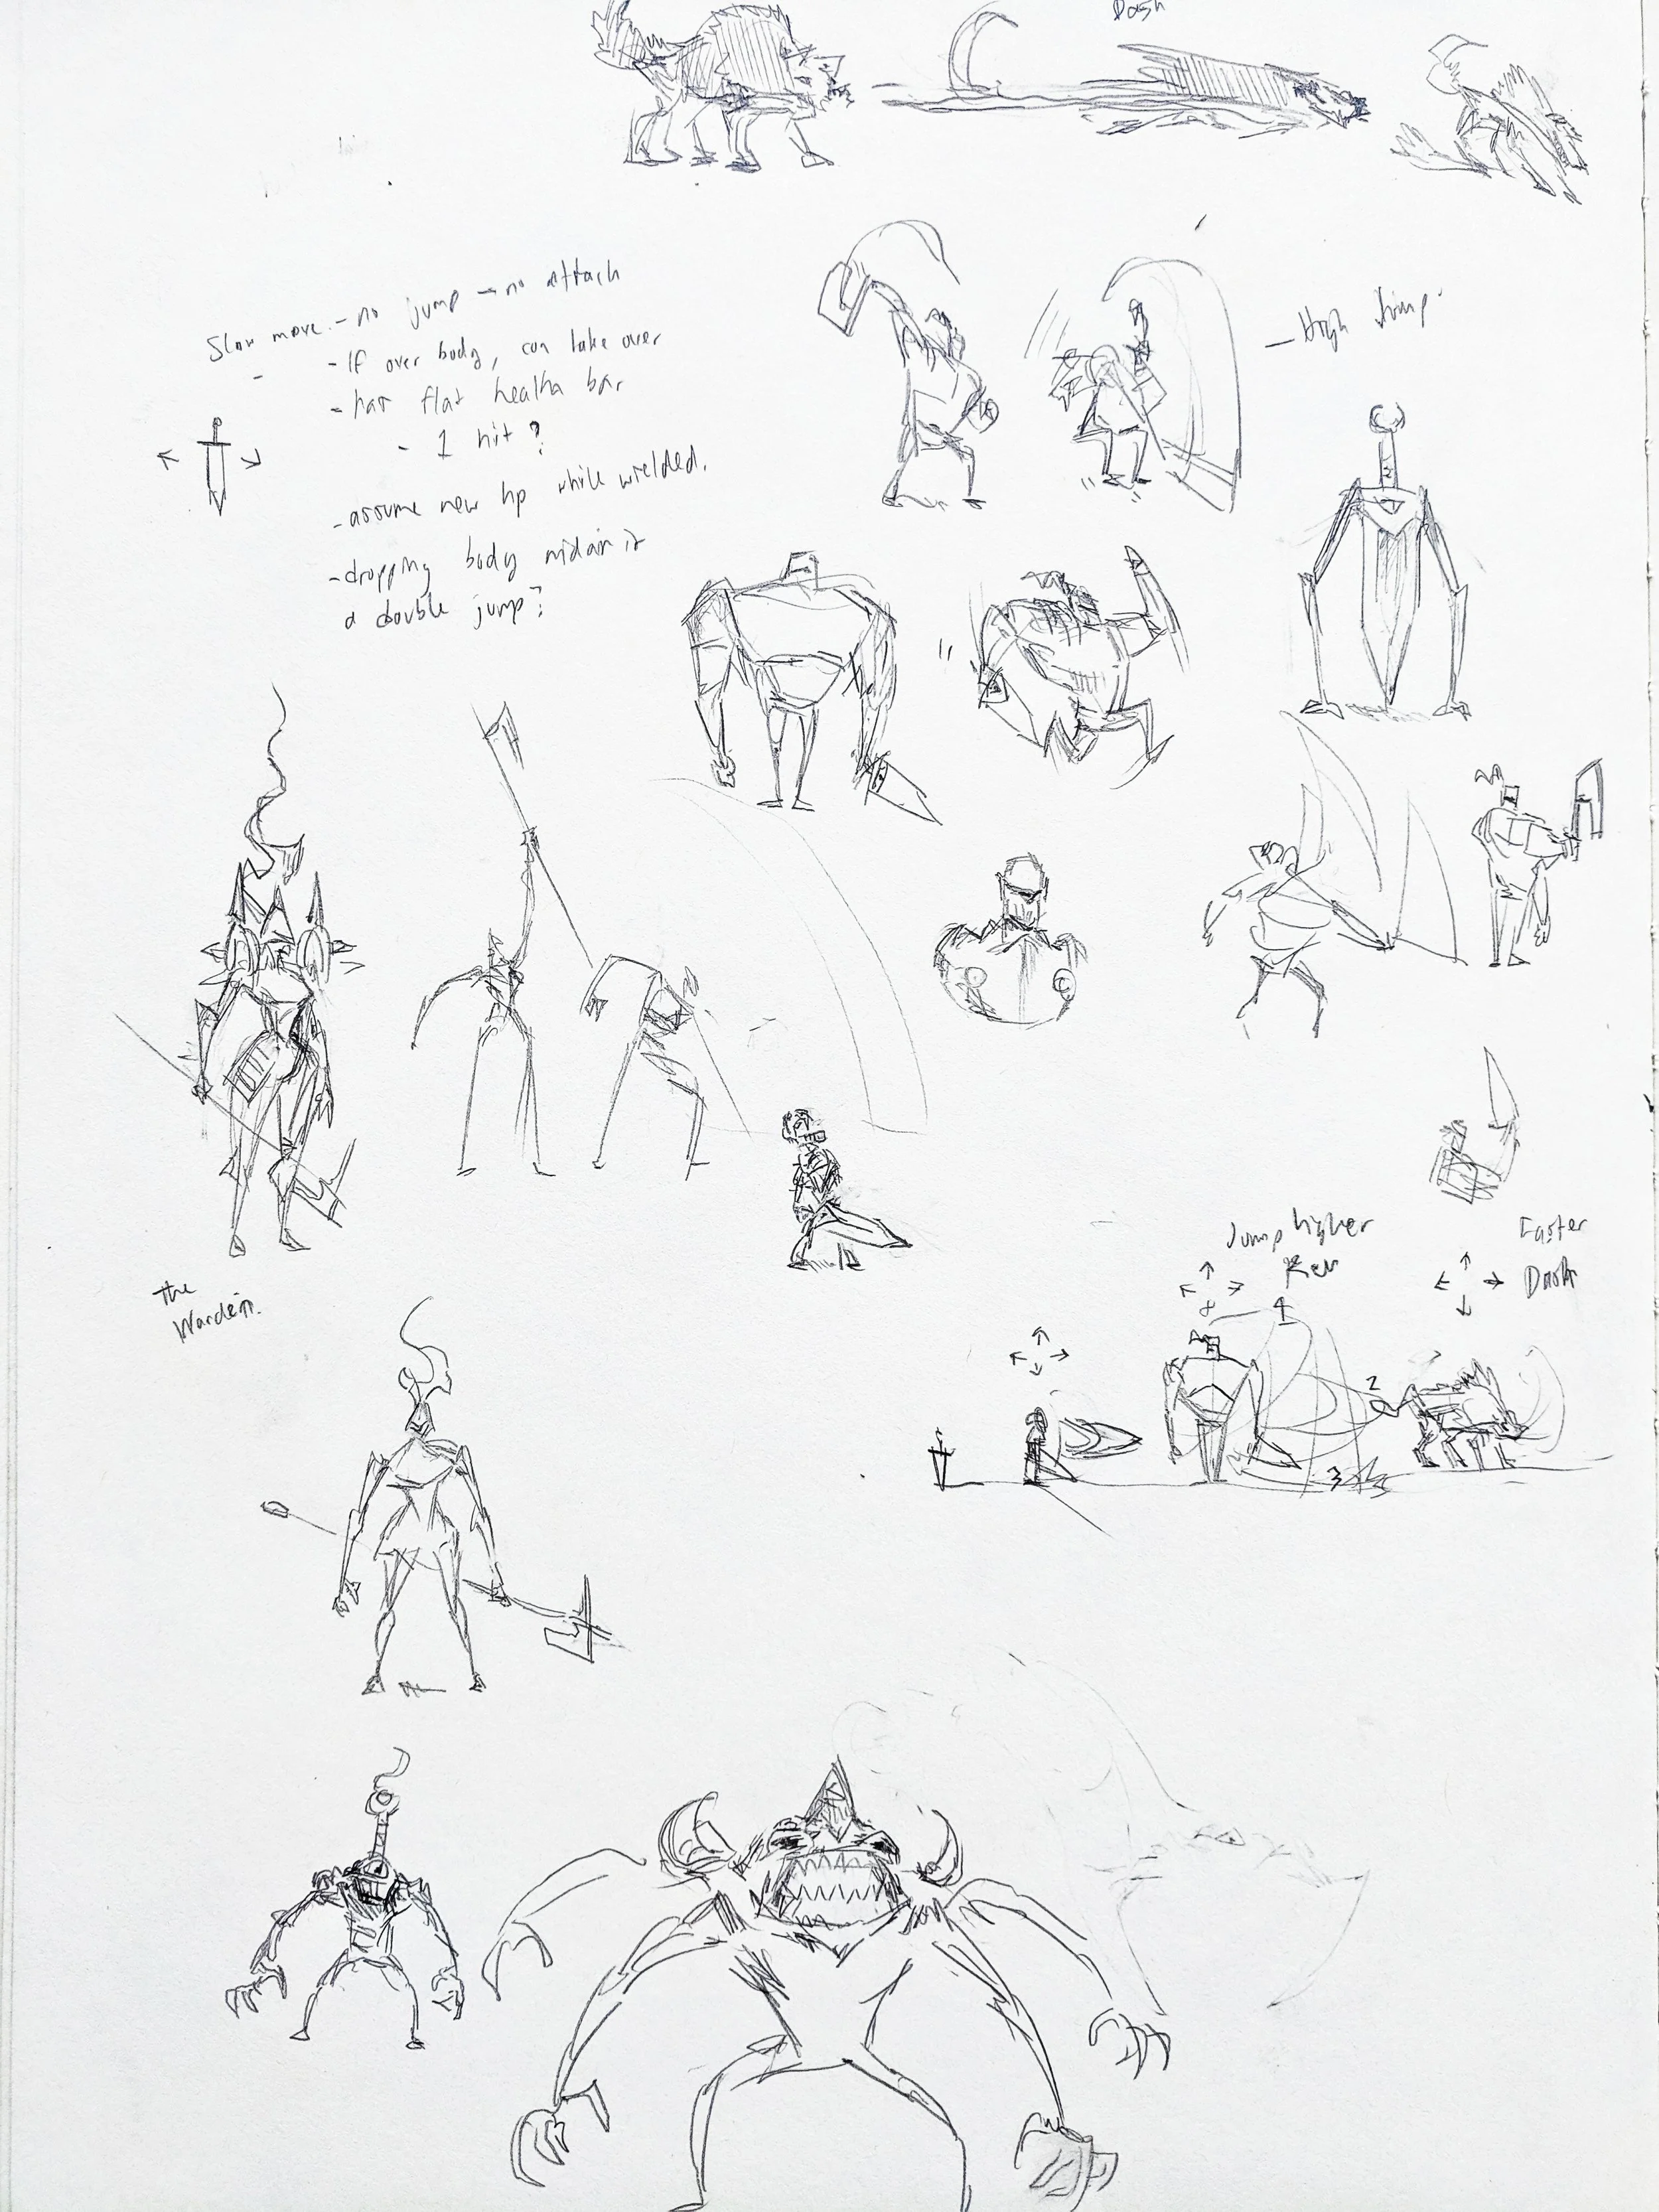 Dash
Slow move. - no jump - no attack
- If over body, can take over
- has flat health bar
- 1 hit?
- assume new hp while wielded.
- dropping body midair is
a double jump?
- High Jump
The
Warden.
Jump higher
Faster
Dash
1
2
3